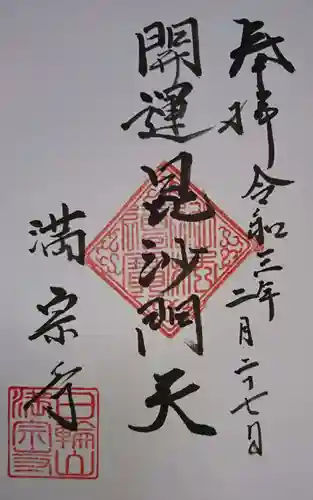 奉拝 令和三年二月二十七日
開運毘沙門天
満宗寺
日輪山
満宗寺